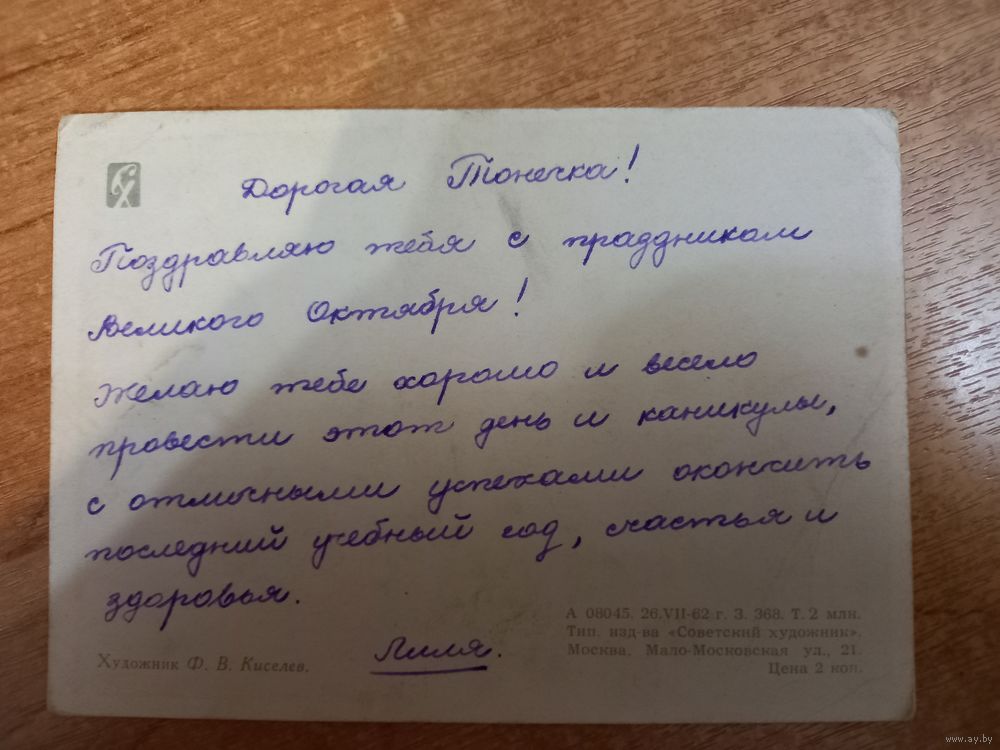 Дорогая Тонечка!
Поздравляю тебя с праздником
Великого Октября!
Желаю тебе хорошо и весело
провести этот день и каникулы,
с отличными успехами окончить
последний учебный год, счастья и
здоровья.
Лиля.
Художник Ф. В. Киселев.
А 08045. 26.VII-62 г. З. 368. Т. 2 млн.
Тип. изд-ва «Советский художник».
Москва, Мало-Московская ул., 21.
Цена 2 коп.
www.ay.by